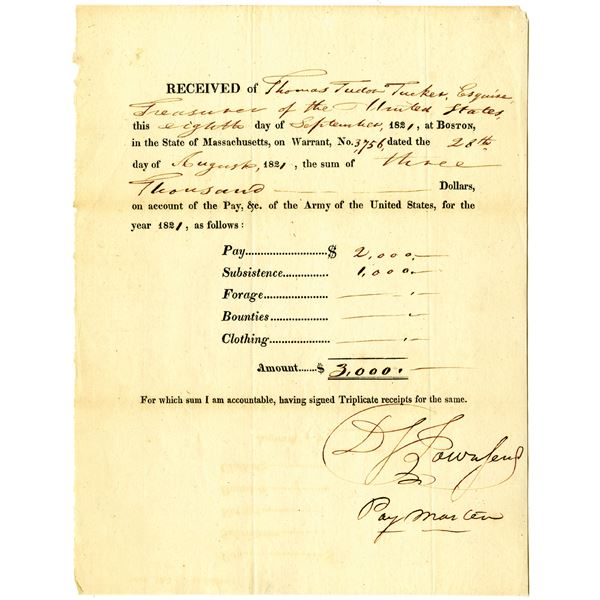 RECEIVED of Thomas Tudor Tucker, Esquire,
Treasurer of the United States,
this eighth day of September, 1821, at BOSTON,
in the State of Massachusetts, on Warrant, No. 3,756 dated the 28th
day of August, 1821, the sum of three
Thousand Dollars,
on account of the Pay, &c. of the Army of the United States, for the
year 1821, as follows:
Pay..............................$ 2,000.—
Subsistence............... 1,000.—
Forage....................... — . —
Bounties..................... — . —
Clothing..................... — . —
Amount......$ 3,000. —
For which sum I am accountable, having signed Triplicate receipts for the same.
D S Townsend
Pay Master